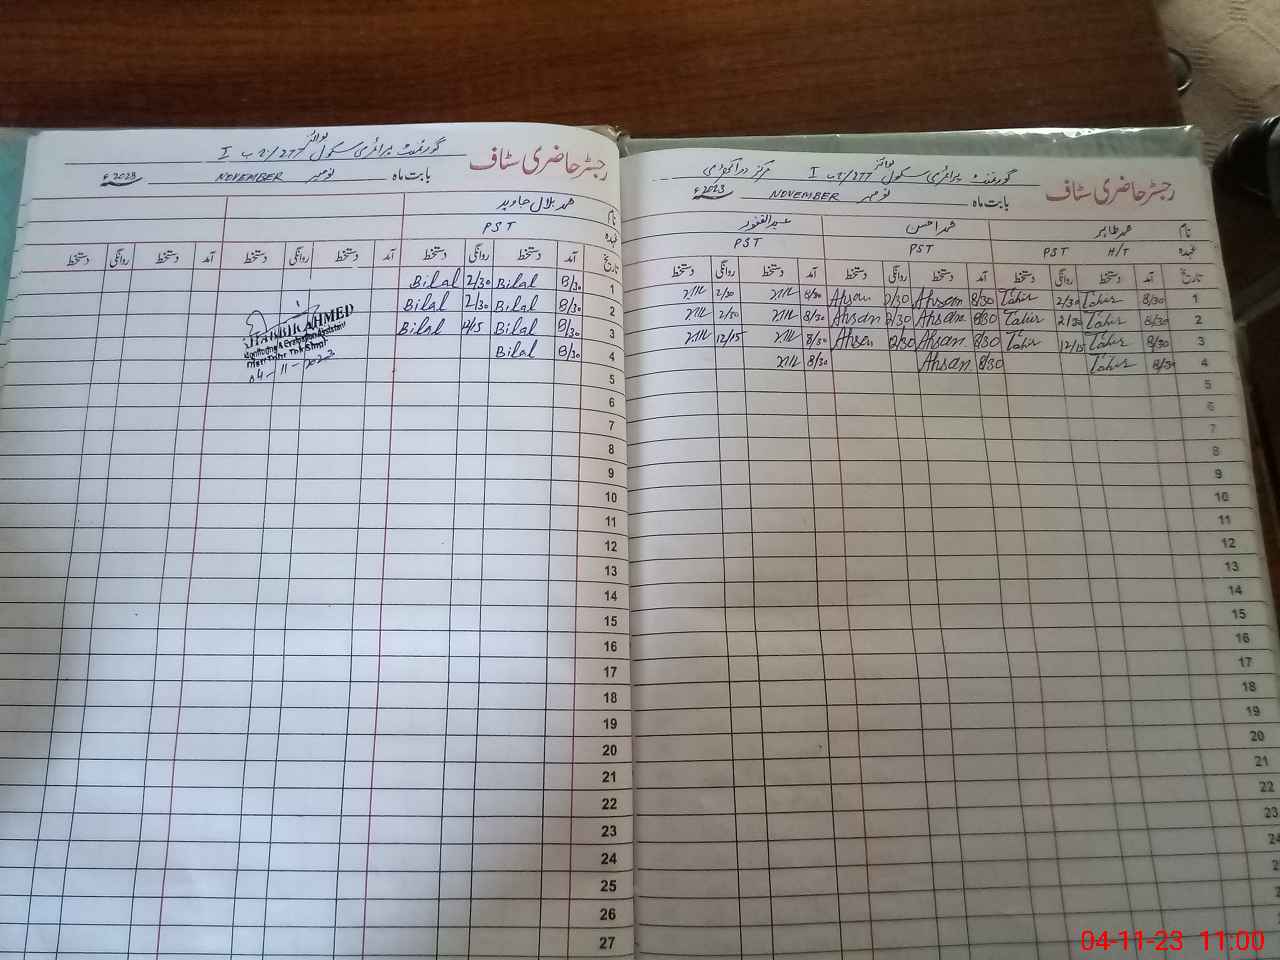 رجسٹر حاضری سٹاف
گورنمنٹ پرائمری سکول بوائز 2/277 I
بابت ماہ نومبر NOVEMBER 2023ء
نام محمد طاہر محمد احسن عبدالغفور
عہدہ PST H/T PST PST
تاریخ آمد دستخط روانگی دستخط آمد دستخط روانگی دستخط آمد دستخط روانگی دستخط
1 8/30 Tahir 2/30 Tahir 8/30 Ahsan 2/30 Ahsan 8/30 2/30
2 8/30 Tahir 2/30 Tahir 8/30 Ahsan 2/30 Ahsan 8/30 2/30
3 8/30 Tahir 12/15 Tahir 8/30 Ahsan Ahsan 8/30 12/15
4 8/30 Tahir 8/30 Ahsan 8/30
5
6
7
8
9
10
11
12
13
14
15
16
17
18
19
20
21
22
23
24
رجسٹر حاضری سٹاف
گورنمنٹ پرائمری سکول بوائز 2/277 I
بابت ماہ نومبر NOVEMBER 2023ء
نام محمد بلال جاوید
عہدہ PST
تاریخ آمد دستخط روانگی دستخط آمد دستخط روانگی دستخط آمد دستخط روانگی دستخط
1 8/30 Bilal 2/30 Bilal
2 8/30 Bilal 2/30 Bilal
3 8/30 Bilal Bilal
4 8/30 Bilal
AHMED
Monitoring & Evaluation Assistant
04-11-2023
5
6
7
8
9
10
11
12
13
14
15
16
17
18
19
20
21
22
23
24
25
26
27
04-11-23 11:00